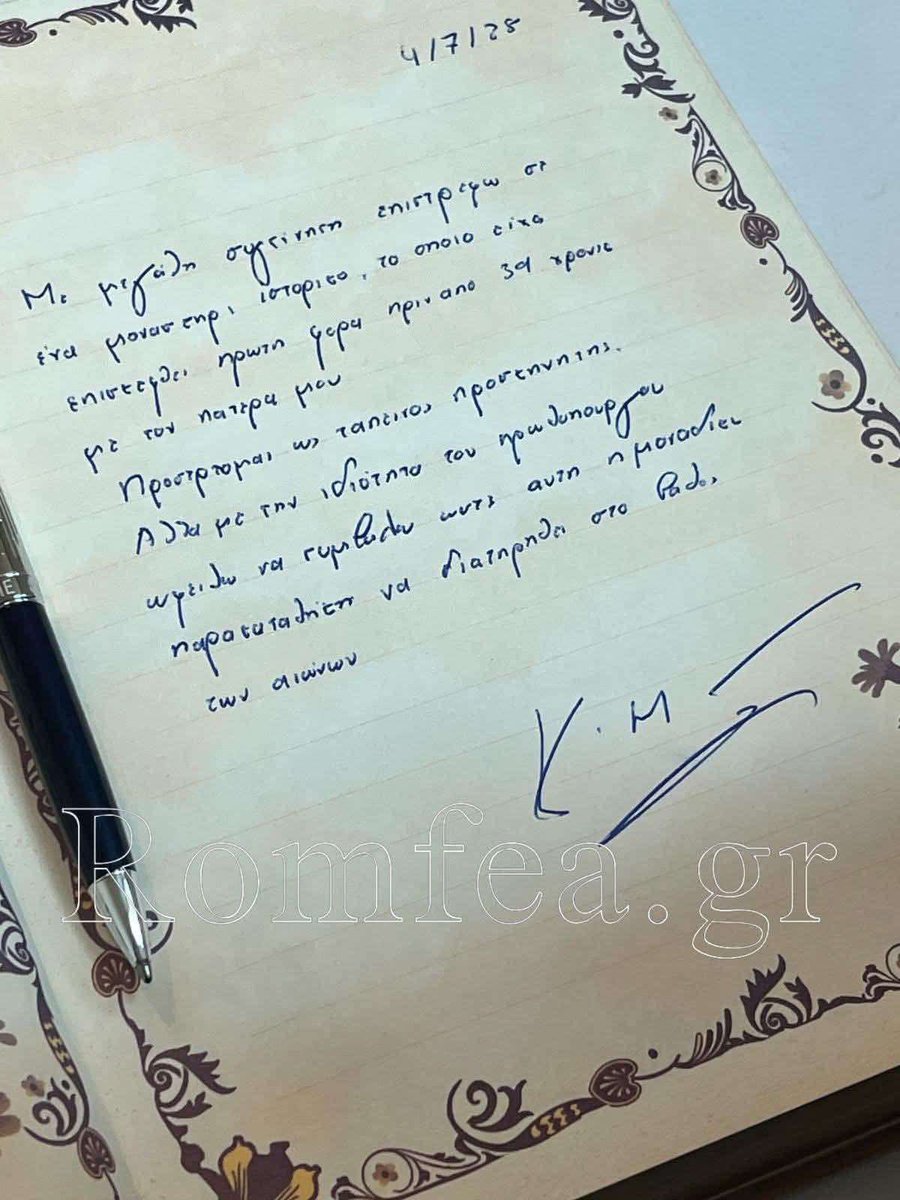 4/7/25
Με μεγάλη συγκίνηση επιστρέφω σε
ένα μοναστήρι ιστορικο, το οποιο είχα
επισκεφθει πρωτη φορα πριν απο 39 χρονια
με τον πατερα μου
Προσερχομαι ως ταπεινος προσκηνητης.
Αλλα με την ιδιότητα του πρωθυπουργου
ωφειλω να συμβαλω ωστε αυτη η μοναδικη
παρακαταθηκη να διατηρηθει στο βαθος
των αιώνων
Κ. Μ
Romfea.gr